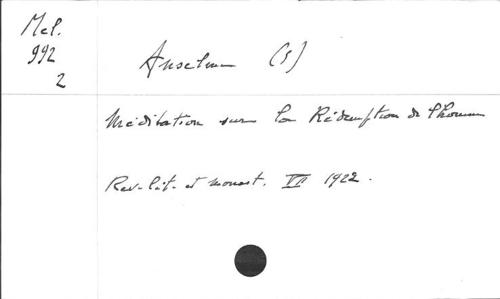 Mel.
992
2
Anselme (S)
Méditation sur la Rédemption de l'homme
Rev. lit. et monast. VII 1922.